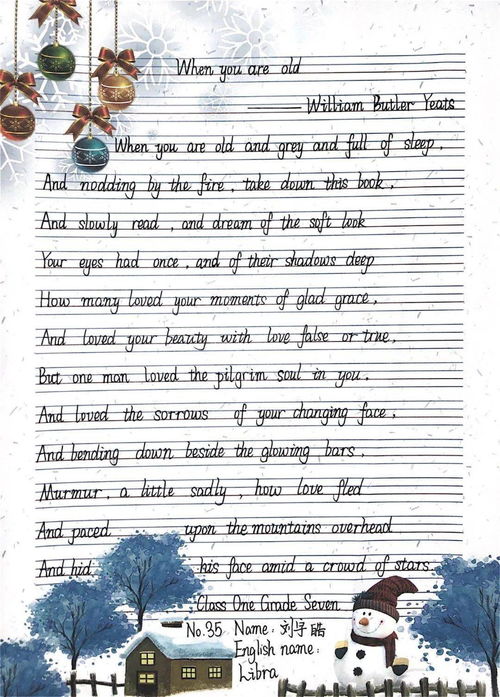 When you are old
—— William Butler Yeats
When you are old and grey and full of sleep,
And nodding by the fire, take down this book,
And slowly read, and dream of the soft look
Your eyes had once, and of their shadows deep
How many loved your moments of glad grace,
And loved your beauty with love false or true,
But one man loved the pilgrim soul in you,
And loved the sorrows of your changing face,
And bending down beside the glowing bars,
Murmur, a little sadly, how love fled
And paced upon the mountains overhead
And hid his face amid a crowd of stars.
Class One Grade Seven
No.35 Name: 刘子皓
English name:
Libra